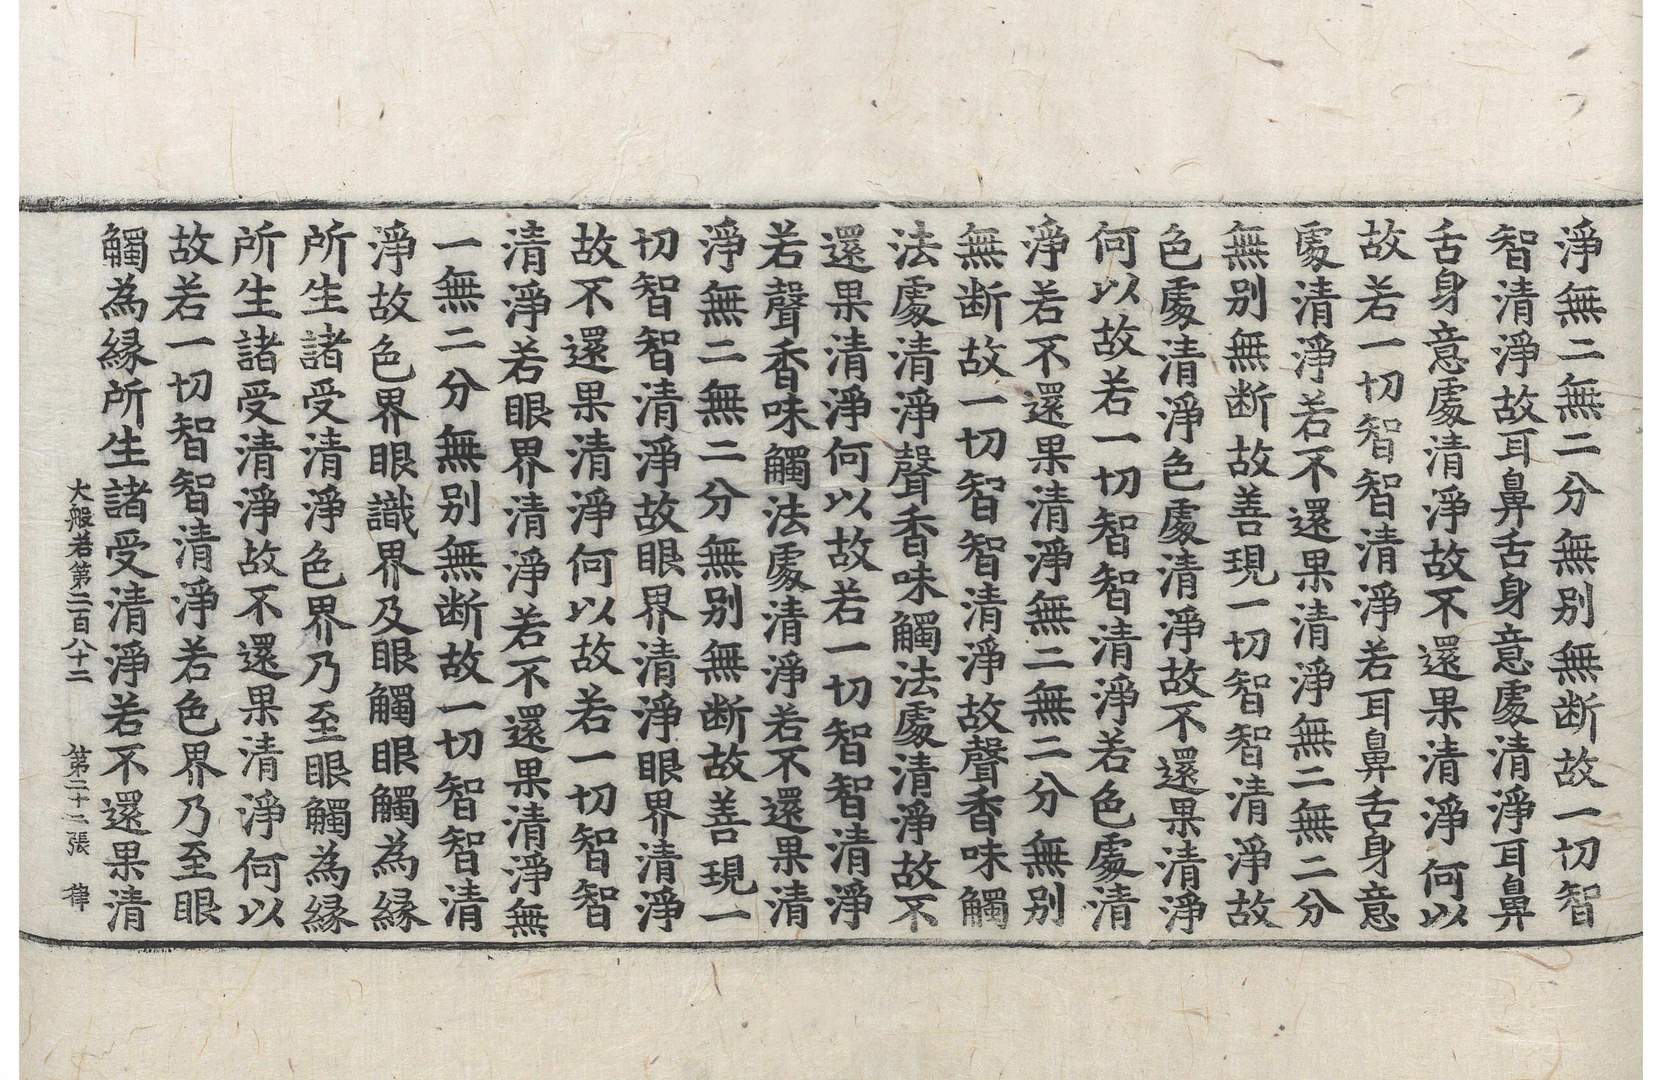 淨無二無二分無别無断故一切智
智清淨故耳鼻舌身意處清淨耳鼻
舌身意處清淨故不還果清淨何以
故若一切智智清淨若耳鼻舌身意
處清淨若不還果清淨無二無二分
無别無断故善現一切智智清淨故
色處清淨色處清淨故不還果清淨
何以故若一切智智清淨若色處清
淨若不還果清淨無二無二分無别
無断故一切智智清淨故聲香味觸
法處清淨聲香味觸法處清淨故不
還果清淨何以故若一切智智清淨
若聲香味觸法處清淨若不還果清
淨無二無二分無别無断故善現一
切智智清淨故眼界清淨眼界清淨
故不還果清淨何以故若一切智智
清淨若眼界清淨若不還果清淨無
一無二分無别無断故一切智智清
淨故色界眼識界及眼觸眼觸為縁
所生諸受清淨色界乃至眼觸為縁
所生諸受清淨故不還果清淨何以
故若一切智智清淨若色界乃至眼
觸為縁所生諸受清淨若不還果清
大般若第二百八十二 第二十二張